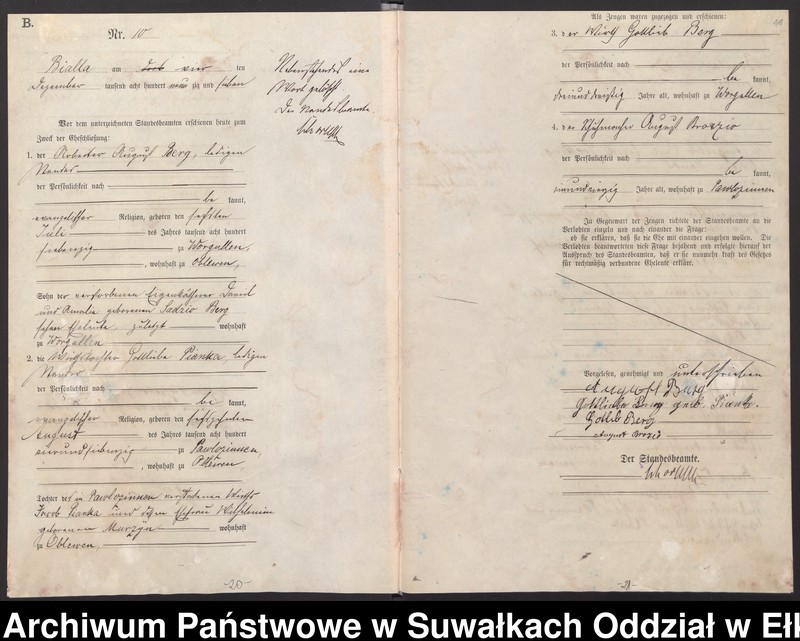 B.
Nr. 10
Bialla am vier ten
Dezember tausend acht hundert neun zig und sieben
Vor dem unterzeichneten Standesbeamten erschienen heute zum
Zweck der Eheschließung:
1. der Arbeiter August Berg, ledigen
Standes
der Persönlichkeit nach
be kannt,
evangelischer Religion, geboren den sechsten
Juli des Jahres tausend acht hundert
siebenzig zu Worgullen,
, wohnhaft zu Oblewen,
Sohn der verstorbenen Eigenkäthner Daniel
und Amalie geborenen Sadzio Berg
schen Eheleute, zuletzt wohnhaft
zu Worgullen
2. die Wirthstochter Gottliebe Pianka, ledigen
Standes
der Persönlichkeit nach
be kannt,
evangelischer Religion, geboren den
August des Jahres tausend acht hundert
vierundsiebenzig zu Pawlozinnen,
, wohnhaft zu Oblewen
Tochter des in Pawlozinnen verstorbenen Wirths
Jacob Pianka und dessen Ehefrau Wilhelmine
geborenen wohnhaft
zu Oblewen,
-20-
Nebenstehendes ein
Wort gelöscht
Der Standesbeamte.
Als Zeugen waren zugezogen und erschienen:
3. der Wirth Gottlieb Berg
der Persönlichkeit nach
be kannt,
dreiunddreißig Jahre alt, wohnhaft zu Worgullen
4. der Schuhmacher August
der Persönlichkeit nach
be kannt,
Jahre alt, wohnhaft zu Pawlozinnen
In Gegenwart der Zeugen richtete der Standesbeamte an die
Verlobten einzeln und nach einander die Frage:
ob sie erklären, daß sie die Ehe mit einander eingehen wollen. Die
Verlobten beantworteten diese Frage bejahend und erfolgte hierauf der
Ausspruch des Standesbeamten, daß er sie nunmehr kraft des Gesetzes
für rechtmäßig verbundene Eheleute erkläre.
Vorgelesen, genehmigt und unterschrieben
August Berg
Gottliebe Berg geb. Pianka.
Gotlib Berg
August
Der Standesbeamte.
-21-
Archiwum Państwowe w Suwałkach Oddział w Eł